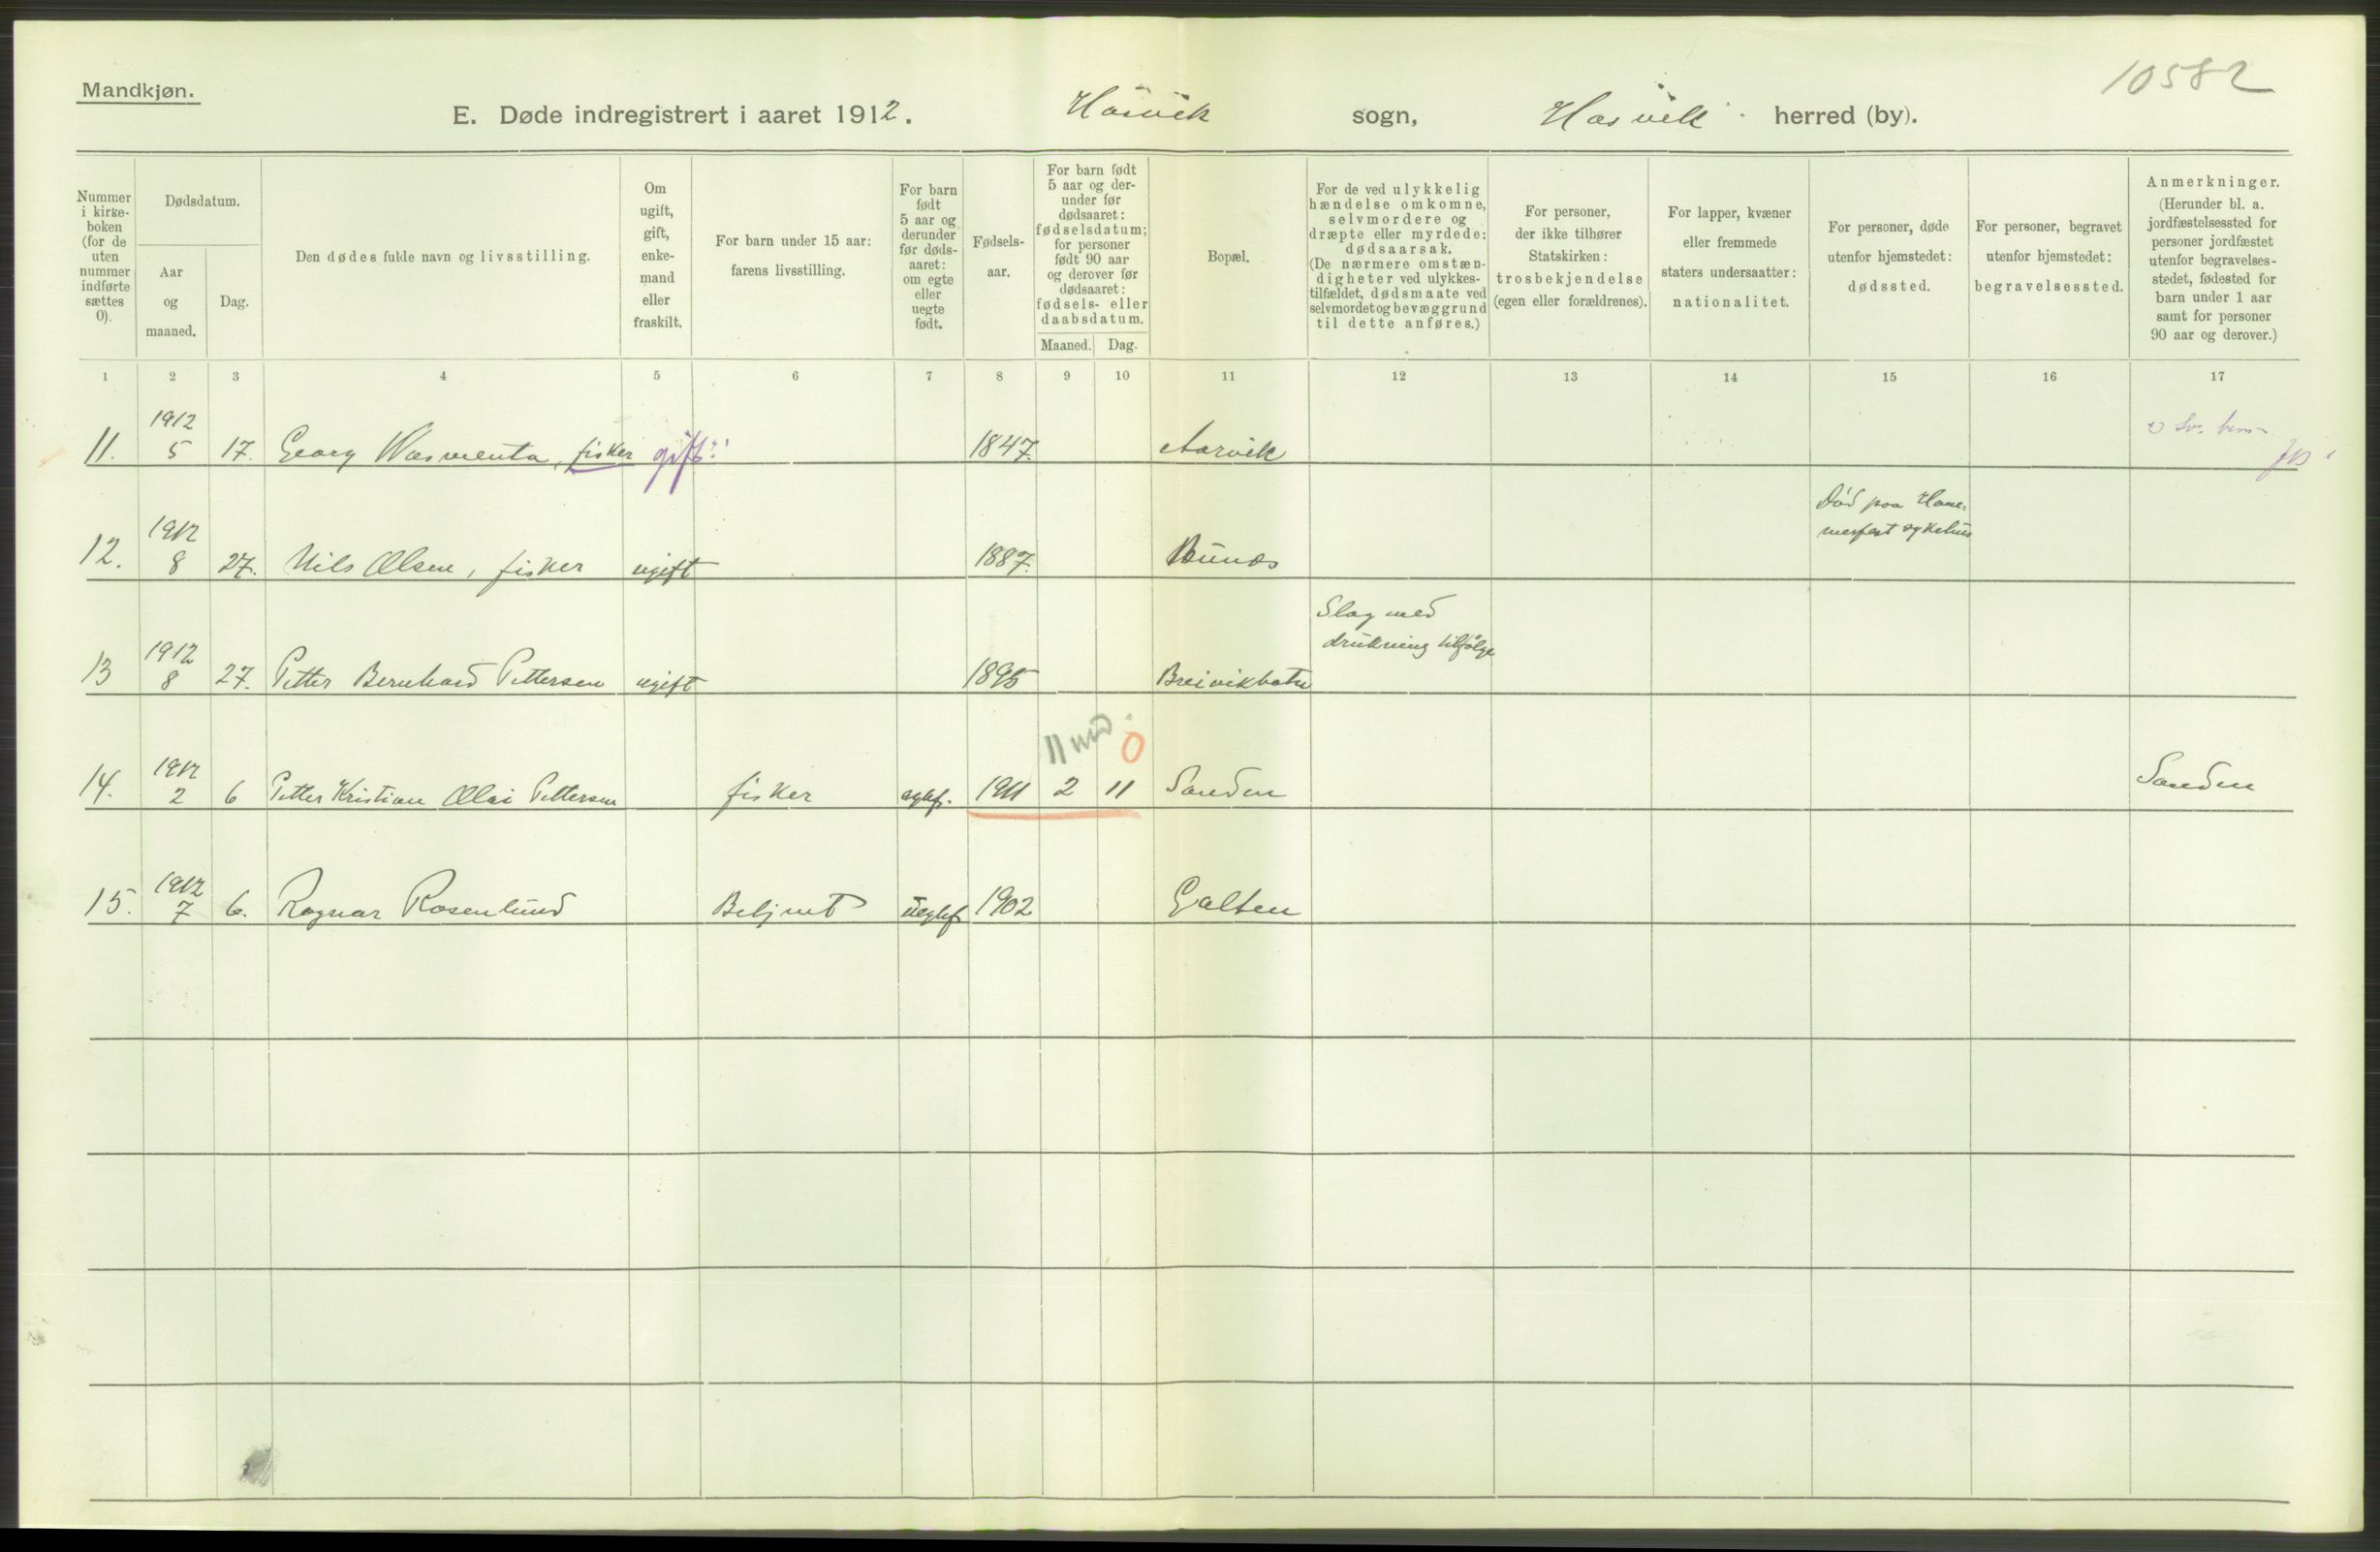 10582
Mandkjøn.
E. Døde indregistrert i aaret 1912. Hasvik sogn, Hasvik herred (by).
Nummer i kirke-boken (for de uten nummer indførte sættes 0).
Dødsdatum.
Aar og maaned.
Dag.
Den dødes fulde navn og livsstilling.
Om ugift, gift, enke-mand eller fraskilt.
For barn under 15 aar: farens livsstilling.
For barn født 5 aar og derunder før døds-aaret: om egte eller uegte født.
Fødsels-aar.
For barn født 5 aar og der-under før dødsaaret: fødselsdatum; for personer født 90 aar og derover før dødsaaret: fødsels- eller daabsdatum.
Maaned. Dag.
Bopæl.
For de ved ulykkelig hændelse omkomne, selvmordere og dræpte eller myrdede: dødsaarsak. (De nærmere omstæn-digheter ved ulykkes-tilfældet, dødsmaate ved selvmordet og bevæggrund til dette anføres.)
For personer, der ikke tilhører Statskirken: trosbekjendelse (egen eller forældrenes).
For lapper, kvæner eller fremmede staters undersaatter: nationalitet.
For personer, døde utenfor hjemstedet: dødssted.
For personer, begravet utenfor hjemstedet: begravelsessted.
Anmerkninger. (Herunder bl. a. jordfæstelsessted for personer jordfæstet utenfor begravelses-stedet, fødested for barn under 1 aar samt for personer 90 aar og derover.)
1 2 3 4 5 6 7 8 9 10 11 12 13 14 15 16 17
11. 1912 5 17. Georg Wasmenta, fisker gift 1847. Aarvik
12. 1912 8 27. Nils Olsen, fisker ugift 1887. Død paa Ham-
merfest sykehus
Slag med
13 1912 8 27. Petter Bernhard Pettersen ugift 1895 Breivikbotn drukning tilfølge
11 md 0
14. 1912 2 6 Petter Kristian Olai Pettersen fisker egtef. 1911 2 11 Sanden Sanden
15. 1912 7 6. Ragnar Rosenlund Betjent uegtef 1902 Galten